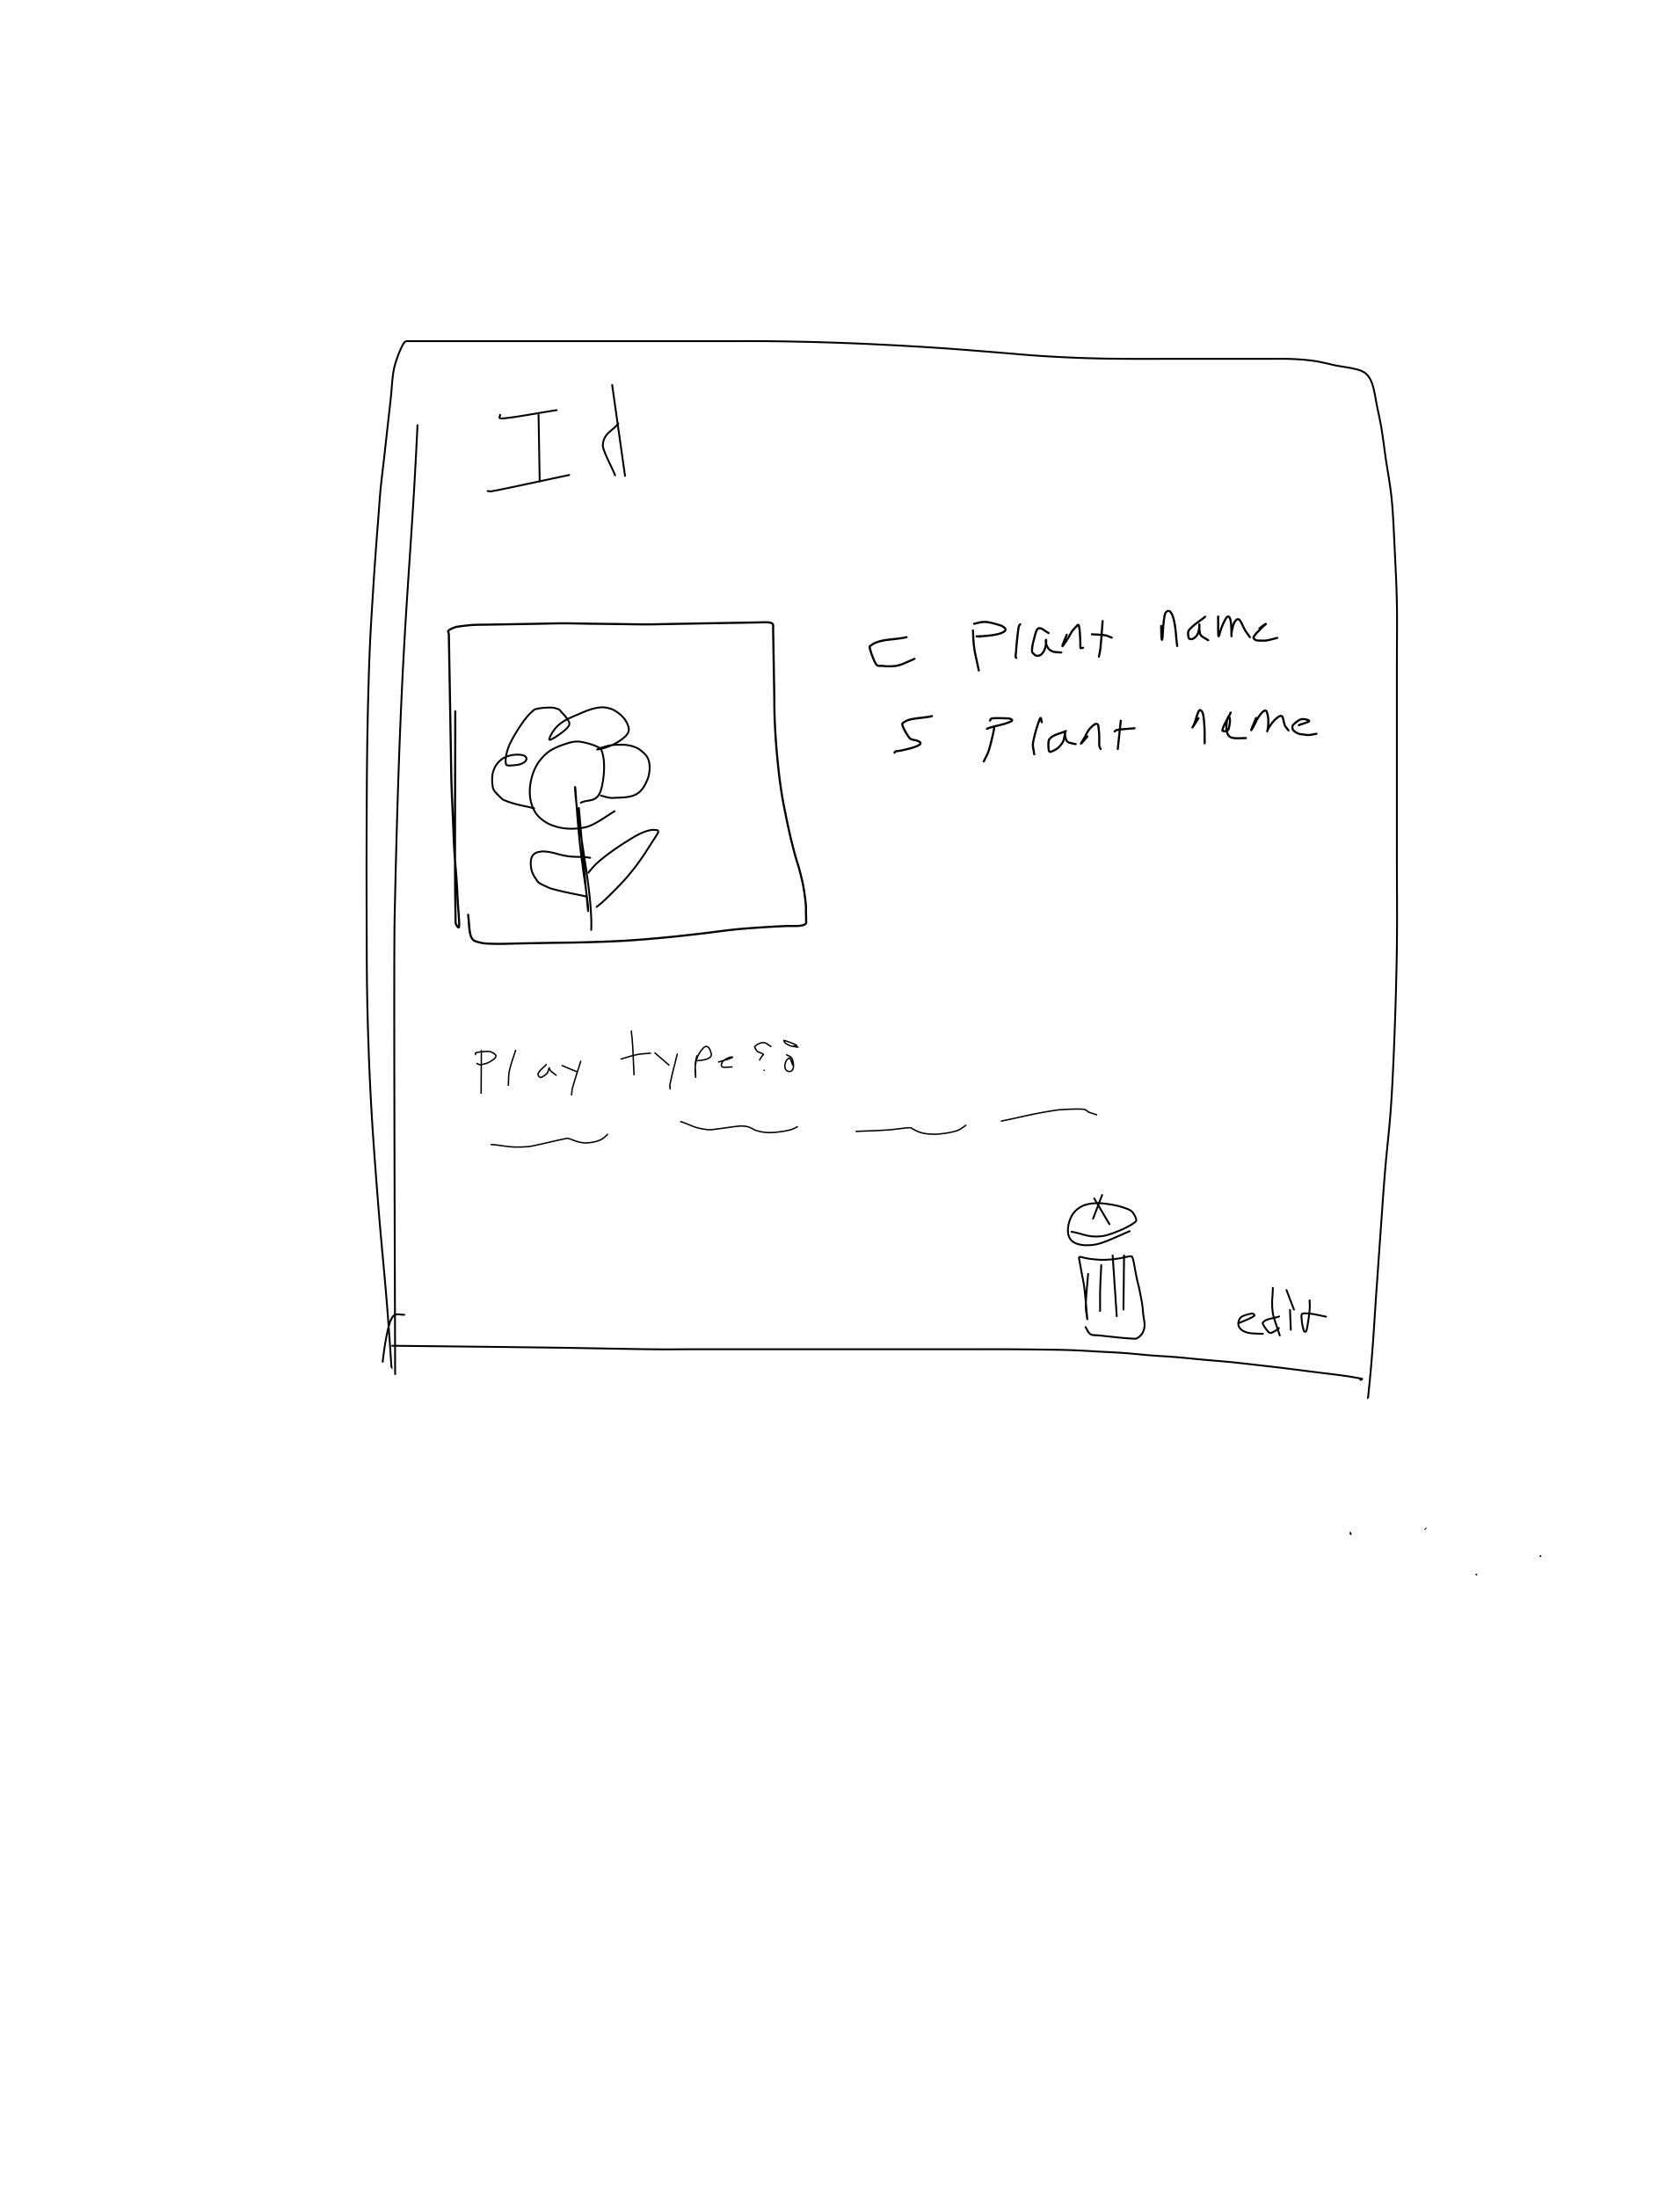 Id
C Plant Name
S Plant name
Play types:
edit